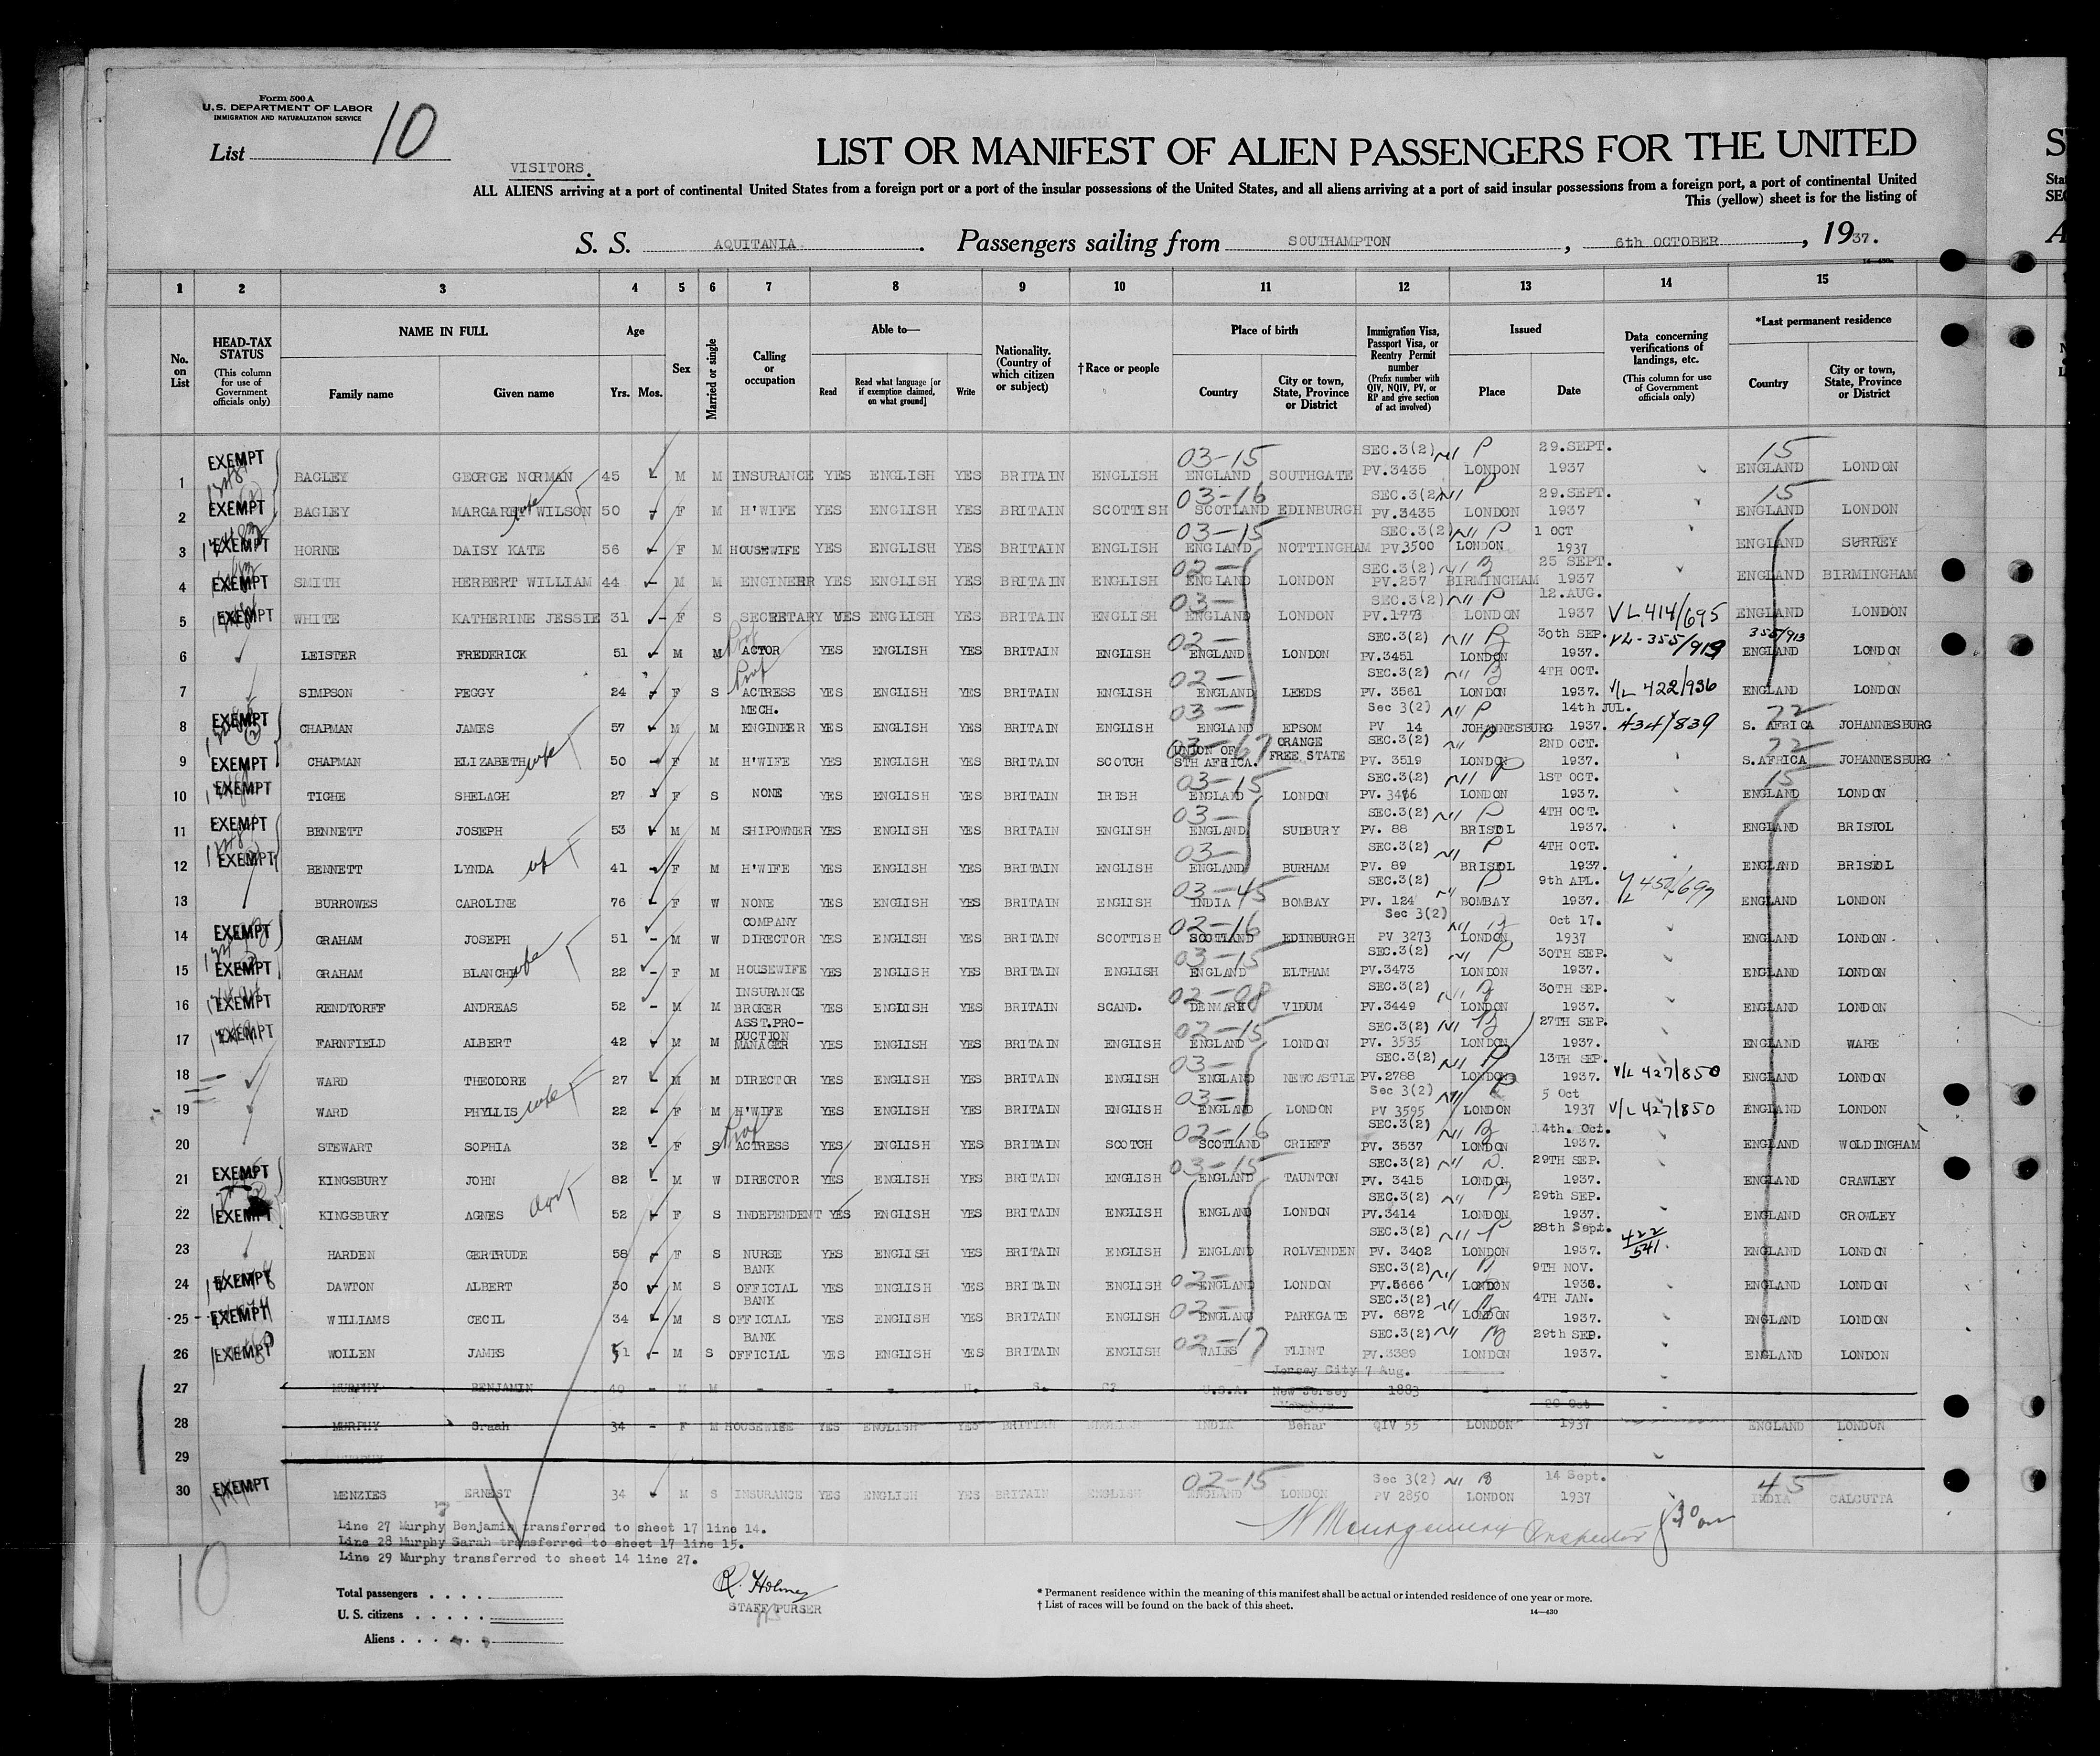 Form 500 A
U. S. DEPARTMENT OF LABOR
IMMIGRATION AND NATURALIZATION SERVICE
List 10
VISITORS.
LIST OR MANIFEST OF ALIEN PASSENGERS FOR THE UNITED
ALL ALIENS arriving at a port of continental United States from a foreign port or a port of the insular possessions of the United States, and all aliens arriving at a port of said insular possessions from a foreign port, a port of continental United
This (yellow) sheet is for the listing of
S. S. AQUITANIA. Passengers sailing from SOUTHAMPTON, 6th OCTOBER, 1937.
1 2 3 4 5 6 7 8 9 10 11 12 13 14 15
No. on List
HEAD-TAX STATUS (This column for use of Government officials only)
NAME IN FULL Family name Given name
Age Yrs. Mos.
Sex
Married or single
Calling or occupation
Able to— Read Read what language [or if exemption claimed, on what ground] Write
Nationality. (Country of which citizen or subject)
†Race or people
Place of birth Country City or town, State, Province or District
Immigration Visa, Passport Visa, or Reentry Permit number (Prefix number with QIV, NQIV, PV, or RP and give section of act involved)
Issued Place Date
Data concerning verifications of landings, etc. (This column for use of Government officials only)
*Last permanent residence Country City or town, State, Province or District
1 EXEMPT BAGLEY GEORGE NORMAN 45 M M INSURANCE YES ENGLISH YES BRITAIN ENGLISH 03-15 ENGLAND SOUTHGATE SEC.3(2) PV.3435 LONDON 29.SEPT. 1937 15 ENGLAND LONDON
2 EXEMPT BAGLEY MARGARET WILSON wife 50 F M H'WIFE YES ENGLISH YES BRITAIN SCOTTISH 03-16 SCOTLAND EDINBURGH SEC.3(2) PV.3435 LONDON 29.SEPT. 1937 15 ENGLAND LONDON
3 EXEMPT HORNE DAISY KATE 56 F M HOUSEWIFE YES ENGLISH YES BRITAIN ENGLISH 03-15 ENGLAND NOTTINGHAM SEC.3(2) PV 3500 LONDON 1 OCT 1937 ENGLAND SURREY
4 EXEMPT SMITH HERBERT WILLIAM 44 M M ENGINEER YES ENGLISH YES BRITAIN ENGLISH 02- ENGLAND LONDON SEC.3(2) PV.257 BIRMINGHAM 25 SEPT. 1937 ENGLAND BIRMINGHAM
5 EXEMPT WHITE KATHERINE JESSIE 31 F S SECRETARY YES ENGLISH YES BRITAIN ENGLISH 03- ENGLAND LONDON SEC.3(2) PV.1773 LONDON 12.AUG. 1937 VL 414/695 ENGLAND LONDON
6 LEISTER FREDERICK 51 M M Prof ACTOR YES ENGLISH YES BRITAIN ENGLISH 02- ENGLAND LONDON SEC.3(2) PV.3451 LONDON 30th SEP. 1937. VL-355/913 355/913 ENGLAND LONDON
7 SIMPSON PEGGY 24 F S Prof ACTRESS YES ENGLISH YES BRITAIN ENGLISH 02- ENGLAND LEEDS SEC.3(2) PV. 3561 LONDON 4TH OCT. 1937. V/L 422/936 ENGLAND LONDON
8 EXEMPT CHAPMAN JAMES 57 M M MECH. ENGINEER YES ENGLISH YES BRITAIN ENGLISH 03- ENGLAND EPSOM Sec 3(2) PV 14 JOHANNESBURG 14th JUL. 1937. 434/839 22 S. AFRICA JOHANNESBURG
9 EXEMPT CHAPMAN ELIZABETH wife 50 F M H'WIFE YES ENGLISH YES BRITAIN SCOTCH 03-67 UNION OF STH AFRICA. ORANGE FREE STATE SEC.3(2) PV. 3519 LONDON 2ND OCT. 1937. 22 S.AFRICA JOHANNESBURG
10 EXEMPT TIGHE SHELAGH 27 F S NONE YES ENGLISH YES BRITAIN IRISH 03-15 ENGLAND LONDON SEC.3(2) PV. 3486 LONDON 1ST OCT. 1937. 15 ENGLAND LONDON
11 EXEMPT BENNETT JOSEPH 53 M M SHIPOWNER YES ENGLISH YES BRITAIN ENGLISH 03- ENGLAND SUDBURY SEC.3(2) PV. 88 BRISTOL 4TH OCT. 1937. ENGLAND BRISTOL
12 EXEMPT BENNETT LYNDA wf 41 F M H'WIFE YES ENGLISH YES BRITAIN ENGLISH 03- ENGLAND BURHAM SEC.3(2) PV. 89 BRISTOL 4TH OCT. 1937. ENGLAND BRISTOL
13 BURROWES CAROLINE 76 F W NONE YES ENGLISH YES BRITAIN ENGLISH 03-45 INDIA BOMBAY SEC.3(2) PV. 124 BOMBAY 9th APL. 1937. ENGLAND LONDON
14 EXEMPT GRAHAM JOSEPH 51 - M W COMPANY DIRECTOR YES ENGLISH YES BRITAIN SCOTTISH 02-16 SCOTLAND EDINBURGH Sec 3(2) PV 3273 LONDON Oct 17. 1937 ENGLAND LONDON
15 EXEMPT GRAHAM BLANCHE wife 22 - F M HOUSEWIFE YES ENGLISH YES BRITAIN ENGLISH 03-15 ENGLAND ELTHAM SEC.3(2) PV.3473 LONDON 30TH SEP. 1937. ENGLAND LONDON
16 EXEMPT RENDTORFF ANDREAS 52 - M M INSURANCE BROKER YES ENGLISH YES BRITAIN SCAND. 02-08 DENMARK VIDUM SEC.3(2) PV.3449 LONDON 30TH SEP. 1937. ENGLAND LONDON
17 EXEMPT FARNFIELD ALBERT 42 M M ASST.PRODUCTION MANAGER YES ENGLISH YES BRITAIN ENGLISH 02-15 ENGLAND LONDON SEC.3(2) PV. 3535 LONDON 27TH SEP. 1937. ENGLAND WARE
18 WARD THEODORE 27 M M DIRECTOR YES ENGLISH YES BRITAIN ENGLISH 03- ENGLAND NEWCASTLE SEC.3(2) PV.2788 LONDON 13TH SEP. 1937. V/L 427/850 ENGLAND LONDON
19 WARD PHYLLIS wife 22 - F M H'WIFE YES ENGLISH YES BRITAIN ENGLISH 03- ENGLAND LONDON Sec 3(2) PV 3595 LONDON 5 Oct 1937 V/L 427/850 ENGLAND LONDON
20 STEWART SOPHIA 32 - F S Prof ACTRESS YES ENGLISH YES BRITAIN SCOTCH 02-16 SCOTLAND CRIEFF SEC.3(2) PV. 3537 LONDON 4th. Oct. 1937. ENGLAND WOLDINGHAM
21 EXEMPT KINGSBURY JOHN 82 - M W DIRECTOR YES ENGLISH YES BRITAIN ENGLISH 03-15 ENGLAND TAUNTON SEC.3(2) PV. 3415 LONDON 29TH SEP. 1937. ENGLAND CRAWLEY
22 EXEMPT KINGSBURY AGNES 52 F S INDEPENDENT YES ENGLISH YES BRITAIN ENGLISH ENGLAND LONDON SEC.3(2) PV.3414 LONDON 29th SEP. 1937. ENGLAND CROWLEY
23 HARDEN GERTRUDE 58 F S NURSE YES ENGLISH YES BRITAIN ENGLISH ENGLAND ROLVENDEN SEC.3(2) PV. 3402 LONDON 28th Sept. 1937. 422/541. ENGLAND LONDON
24 EXEMPT DAWTON ALBERT 30 M S BANK OFFICIAL YES ENGLISH YES BRITAIN ENGLISH 02- ENGLAND LONDON SEC.3(2) PV.5666 LONDON 9TH NOV. 1936. ENGLAND LONDON
25 EXEMPT WILLIAMS CECIL 34 M S BANK OFFICIAL YES ENGLISH YES BRITAIN ENGLISH 02- ENGLAND PARKGATE SEC.3(2) PV. 6872 LONDON 4TH JAN. 1937. ENGLAND LONDON
26 EXEMPT WOLLEN JAMES 51 M S BANK OFFICIAL YES ENGLISH YES BRITAIN ENGLISH 02-17 WALES FLINT SEC.3(2) PV.3389 LONDON 29th SEP. 1937. ENGLAND LONDON
27 MURPHY BENJAMIN 40 - M M - - - U. S. U.S.A. Jersey City New Jersey 7 Aug. 1883 - -
28 MURPHY Sraah 34 - F M HOUSEWIFE YES ENGLISH YES BRITIAN ENGLISH INDIA Behar QIV 55 LONDON 20 Oct 1937 ENGLAND LONDON
29 MURPHY
30 EXEMPT MENZIES ERNEST 34 M S INSURANCE YES ENGLISH YES BRITAIN ENGLISH 02-15 ENGLAND LONDON Sec 3(2) PV 2850 LONDON 14 Sept. 1937 45 INDIA CALCUTTA
Line 27 Murphy Benjamin transferred to sheet 17 line 14.
Line 28 Murphy Sarah transferred to sheet 17 line 15.
Line 29 Murphy transferred to sheet 14 line 27.
Montgomery Inspector
10
Total passengers . . . .
U. S. citizens . . . . .
Aliens . . . . .
R. Holmes
STAFF PURSER
* Permanent residence within the meaning of this manifest shall be actual or intended residence of one year or more.
† List of races will be found on the back of this sheet.
14—430